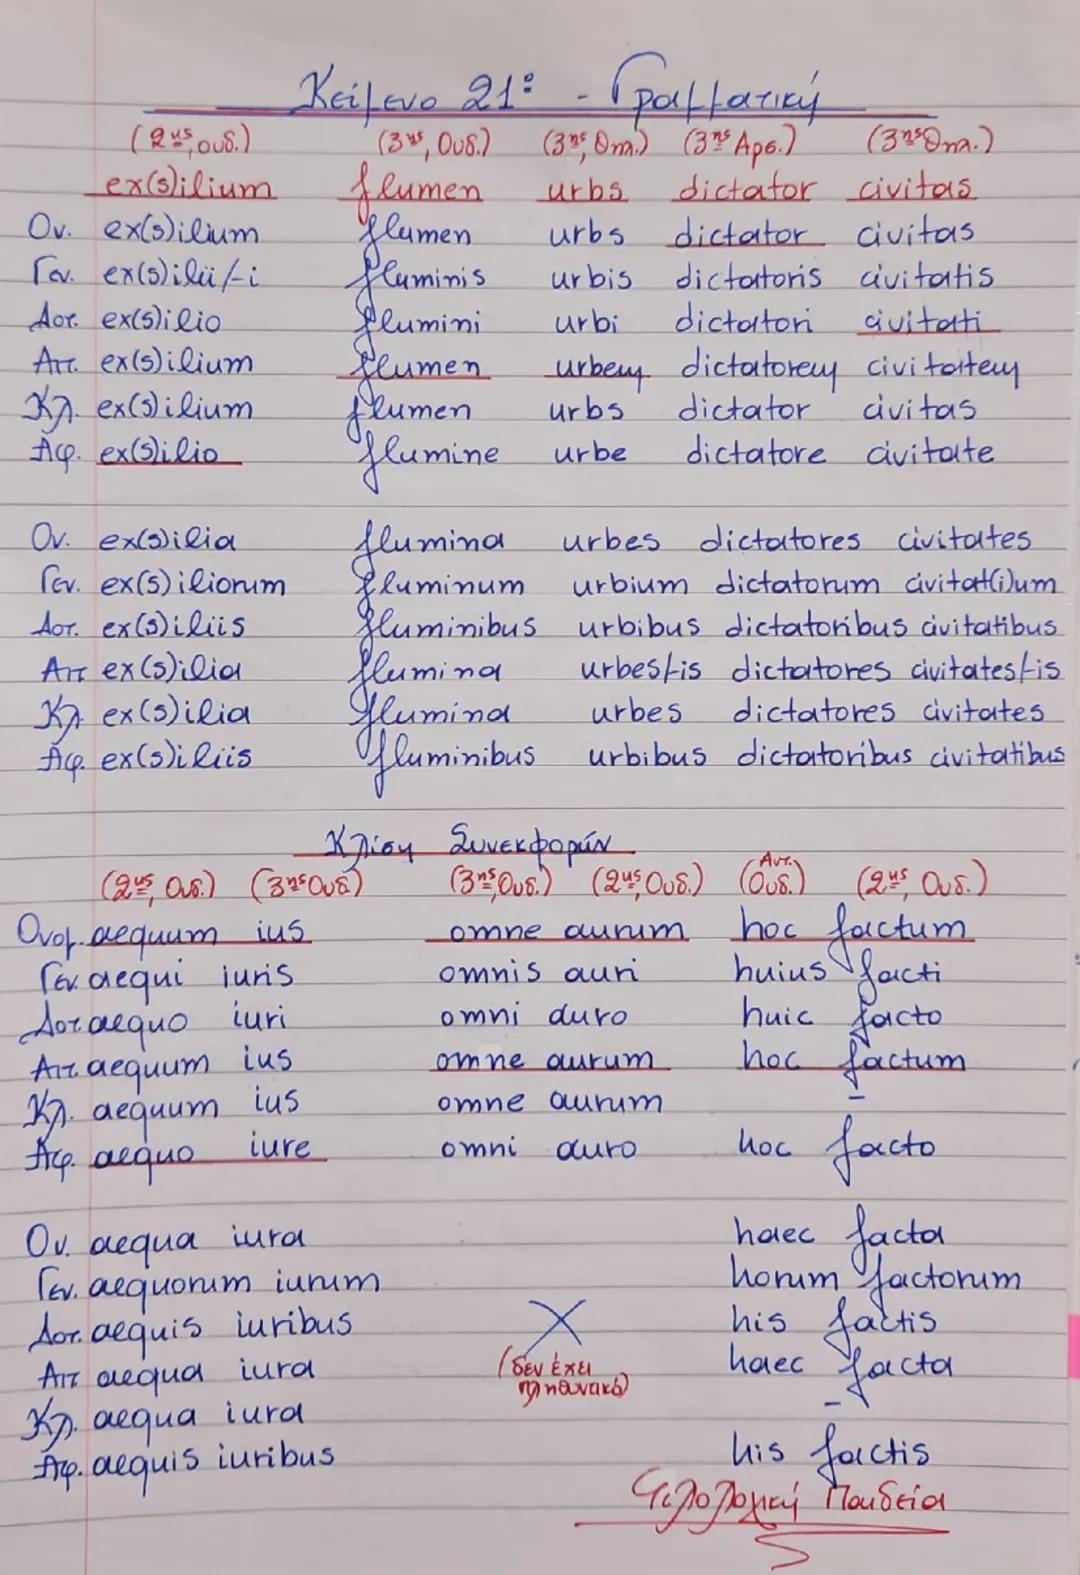 Κείμενο 21° - Γραμματική
(2ης, Ουδ.) (3ης, Ουδ.) (3ης, Θηλ.) (3ης Αρσ.) (3ης Θηλ.)
ex(s)ilium flumen urbs dictator civitas
Ον. ex(s)ilium flumen urbs dictator civitas
Γεν. ex(s)ilii/-i fluminis urbis dictatoris civitatis
Δοτ. ex(s)ilio flumini urbi dictatori civitati
Αιτ. ex(s)ilium flumen urbem dictatorem civitatem
Κλ. ex(s)ilium flumen urbs dictator civitas
Αφ. ex(s)ilio flumine urbe dictatore civitate
Ον. ex(s)ilia flumina urbes dictatores civitates
Γεν. ex(s)iliorum fluminum urbium dictatorum civitat(i)um
Δοτ. ex(s)iliis fluminibus urbibus dictatoribus civitatibus
Αιτ ex(s)ilia flumina urbes/-is dictatores civitates/-is
Κλ. ex(s)ilia flumina urbes dictatores civitates
Αφ. ex(s)iliis fluminibus urbibus dictatoribus civitatibus
Κλίση Συνεκφορών
(2ης, Ουδ.) (3ης Ουδ.) (3ης, Ουδ.) (2ης, Ουδ.) (Αντ. Ουδ.) (2ης, Ουδ.)
Ονομ. aequum ius omne aurum hoc factum
Γεν. aequi iuris omnis auri huius facti
Δοτ. aequo iuri omni auro huic facto
Αιτ. aequum ius omne aurum hoc factum
Κλ. aequum ius omne aurum -
Αφ. aequo iure omni auro hoc facto
Ον. aequa iura haec facta
Γεν. aequorum iurum horum factorum
Δοτ. aequis iuribus his factis
Αιτ aequa iura (δεν έχει πληθυντικό) haec facta
Κλ. aequa iura -
Αφ. aequis iuribus his factis
Φιλολογική Παιδεία